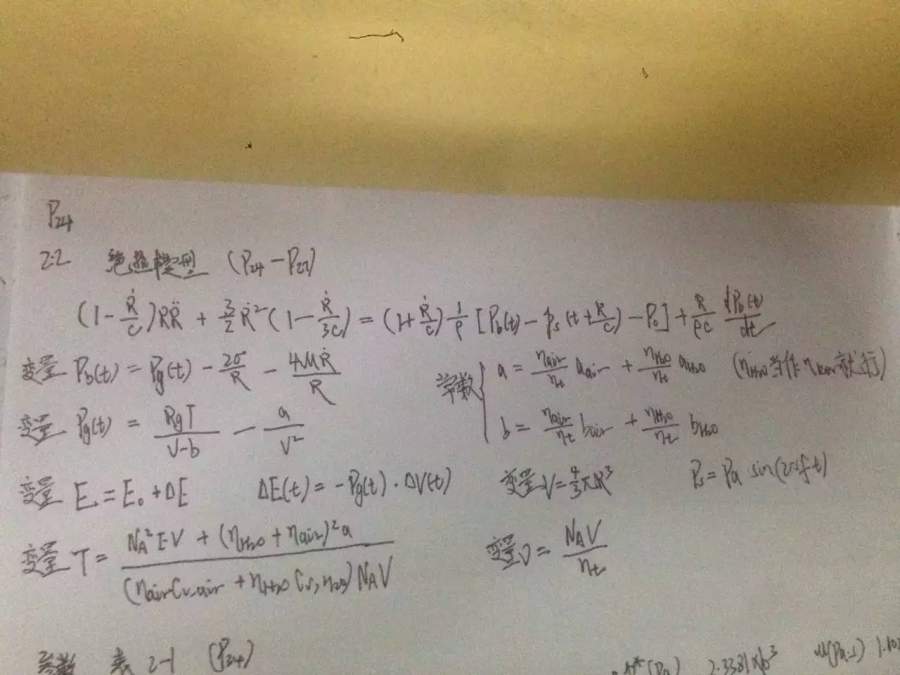 P24
2.2 绝热模型 (P24-P27)
(1-Ṙ/c)RR̈ + 3/2 Ṙ²(1-Ṙ/3c) = (1+Ṙ/c) 1/ρ [Pb(t) - Ps(t+R/c) - P0] + R/ρc dPb(t)/dt
变量 Pb(t) = Pg(t) - 2σ/R - 4MṘ/R
常数 { a = nair/nt aair + nH2O/nt aH2O (nH2O当作 就行)
变量 Pg(t) = RgT/(V-b) - a/V²
b = nair/nt bair + nH2O/nt bH2O
变量 E = E0 + ΔE ΔE(t) = -Pg(t)·ΔV(t) 变量 V = 4/3 πR³ Ps = Pa sin(2πft)
变量 T = (NA²EV + (nH2O + nair)²a) / ((nair Cv,air + nH2O Cv,H2O) NAV)
变量 V = NAV/nt
参数 表 2-1 (P24) (Pa) 2.3381×10³ μ(Pa·s)